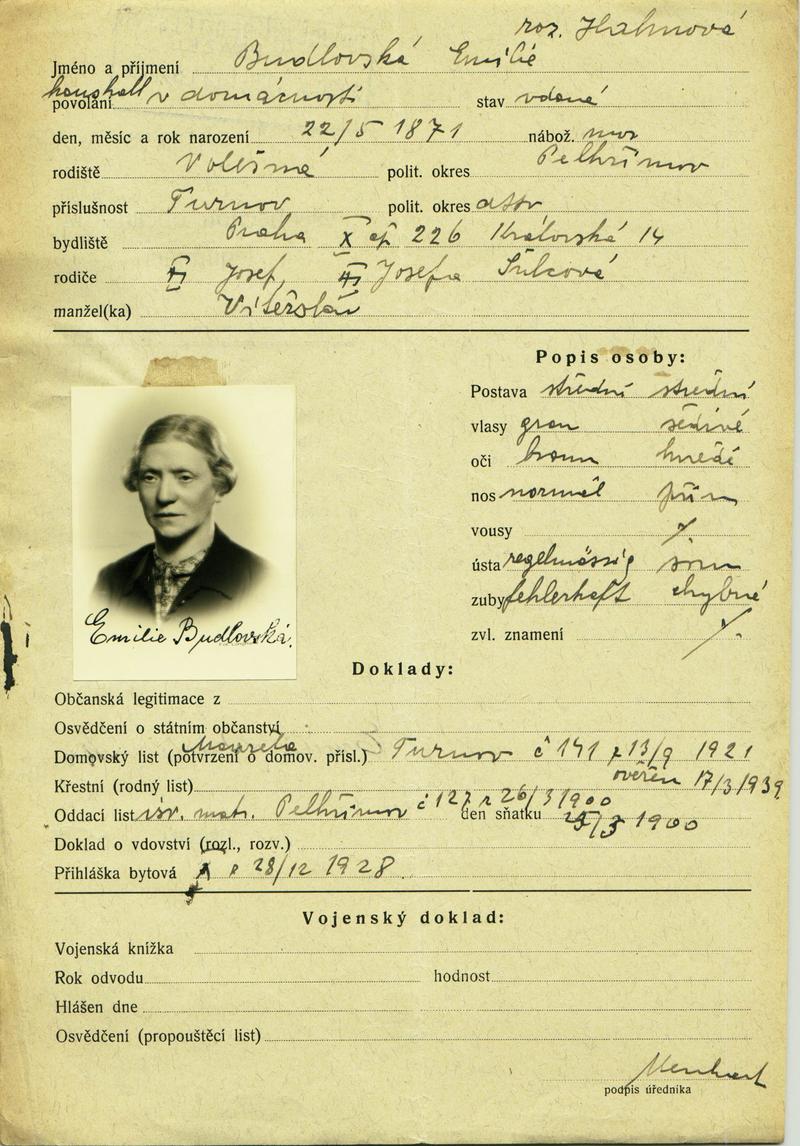 roz. Hahnová
Jméno a příjmení Budlovská Emilie
povolání v domácnosti stav vdaná
den, měsíc a rok narození 22/5 1871 nábož. mos
rodiště polit. okres Pelhřimov
příslušnost Turnov polit. okres
bydliště Praha X čp 226 Královská 14
rodiče Josef, Josefa
manžel(ka) Vítězslav
Popis osoby:
Postava střední střední
vlasy grau šedivé
oči braun hnědé
nos normál
vousy
ústa regelmässig
zuby fehlerhaft chybné
zvl. znamení
Emilie Budlovská.
Doklady:
Občanská legitimace z
Osvědčení o státním občanství
Domovský list (potvrzení o domov. přísl.) Turnov č 141 z 13/9 1921
Křestní (rodný list) ověřen 17/3/1939
Oddací list isr. matr. Pelhřimov č 127 z 26/3/1900 den sňatku 25/3 1900
Doklad o vdovství (rozl., rozv.)
Přihláška bytová z 28/12 1928
Vojenský doklad:
Vojenská knížka
Rok odvodu hodnost
Hlášen dne
Osvědčení (propouštěcí list)
podpis úředníka